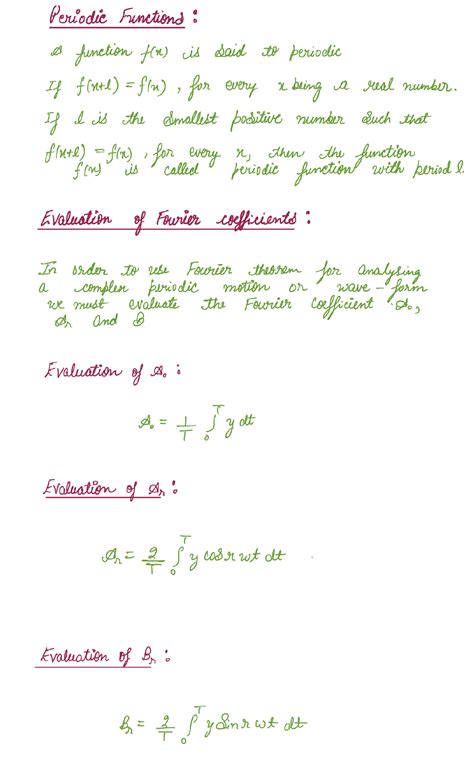 Periodic Functions :
A function f(x) is said to periodic
If f(x+l) = f(x) , for every x being a real number.
If l is the smallest positive number such that
f(x+l) = f(x) , for every x, then the function
f(x) is called periodic function with period l.
Evaluation of Fourier coefficients :
In order to use Fourier theorem for analysing
a complex periodic motion or wave-form
we must evaluate the Fourier Coefficient A₀,
Aᵣ and B
Evaluation of A₀ :
A₀ = 1/T ∫₀ᵀ y dt
Evaluation of Aᵣ :
Aᵣ = 2/T ∫₀ᵀ y cos r wt dt
Evaluation of Bᵣ :
Bᵣ = 2/T ∫₀ᵀ y Sin r wt dt